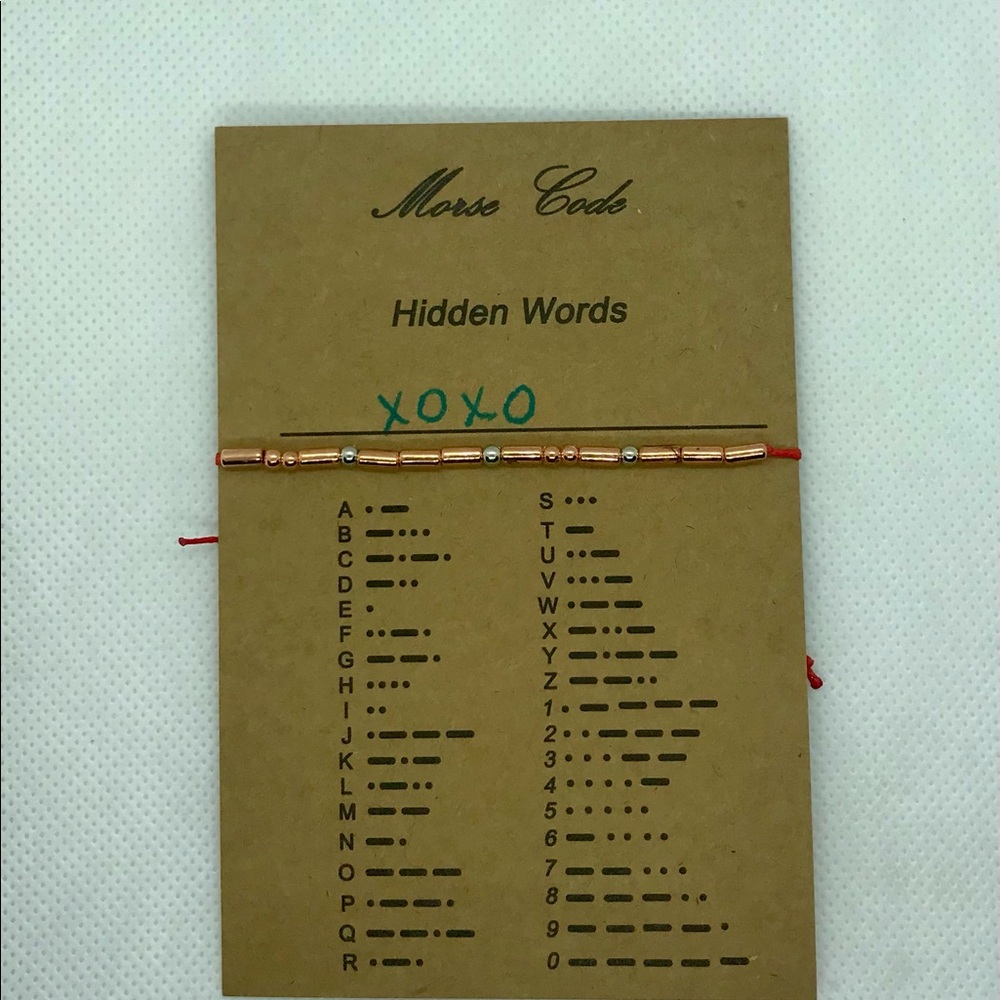 Morse Code
Hidden Words
XOXO
A •—
B —•••
C —•—•
D —••
E •
F ••—•
G ——•
H ••••
I ••
J •———
K —•—
L •—••
M ——
N —•
O ———
P •——•
Q ——•—
R •—•
S •••
T —
U ••—
V •••—
W •——
X —••—
Y —•——
Z ——••
1 •————
2 ••———
3 •••——
4 ••••—
5 •••••
6 —••••
7 ——•••
8 ———••
9 ————•
0 —————